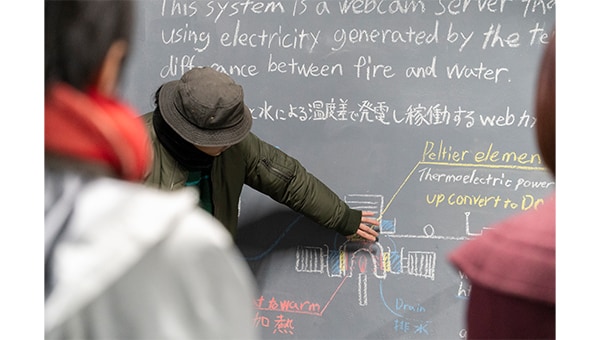 This system is a webcam server
using electricity generated by the
difference between fire and water.
と水による温度差で発電し稼働するwebカ
Peltier elemen
Thermoelectric power
up convert to D
to warm
加熱
Drain
排水